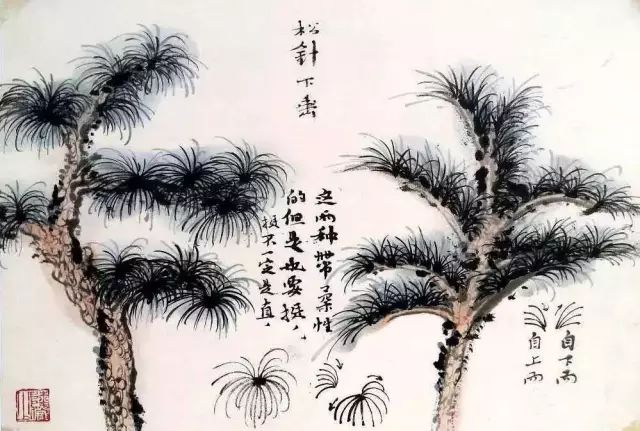 松針下垂
这两种帶柔性
的但是也要挺，
挺不一定是直，
自下而
自上而